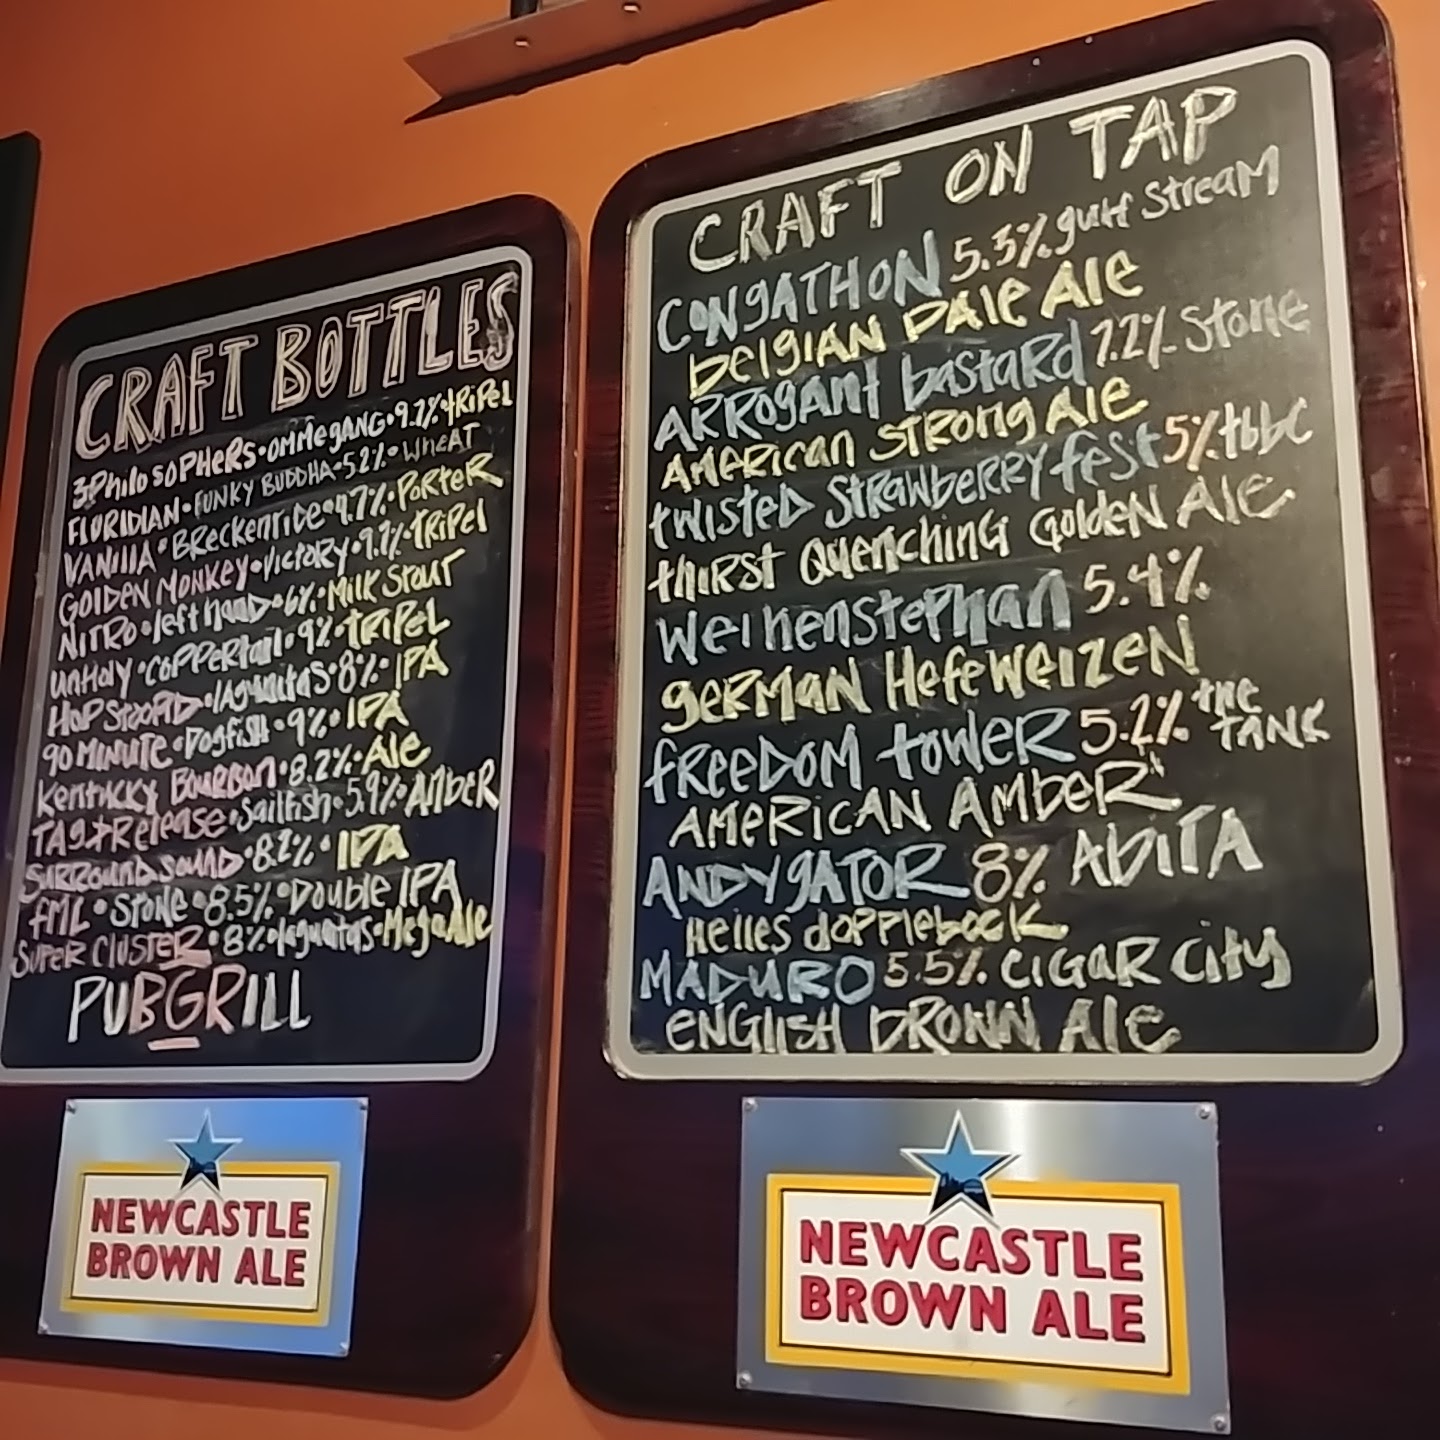 CRAFT BOTTLES
3 Philosophers • Ommegang • 9.7% • Tripel
Floridian • Funky Buddha • 5.2% • Wheat
Vanilla • Breckenridge • 4.7% • Porter
Golden Monkey • Victory • 9.7% • Tripel
Nitro • left hand • 6% • Milk Stout
Unholy • Coppertail • 9% • Tripel
Hop Stoopid • Lagunitas • 8% • IPA
90 Minute • Dogfish • 9% • IPA
Kentucky Bourbon • 8.2% • Ale
Tag & Release • Sailfish • 5.9% • Amber
Surround Sound • 8.2% • IPA
FML • Stone • 8.5% • Double IPA
Super Cluster • 8% • Lagunitas • Mega Ale
PUBGRILL
NEWCASTLE
BROWN ALE
CRAFT ON TAP
CONGATHON 5.3% gulf Stream
Belgian Pale Ale
Arrogant bastard 7.2% Stone
American Strong Ale
twisted Strawberry fest 5% tbbc
thirst Quenching Golden Ale
Weihenstephan 5.4%
German Hefeweizen
freedom tower 5.2% the TANK
AMERICAN AMBER
ANDYGATOR 8% AbITA
Helles dopplebock
MADURO 5.5% CIGAR City
ENGLISH BROWN Ale
NEWCASTLE
BROWN ALE